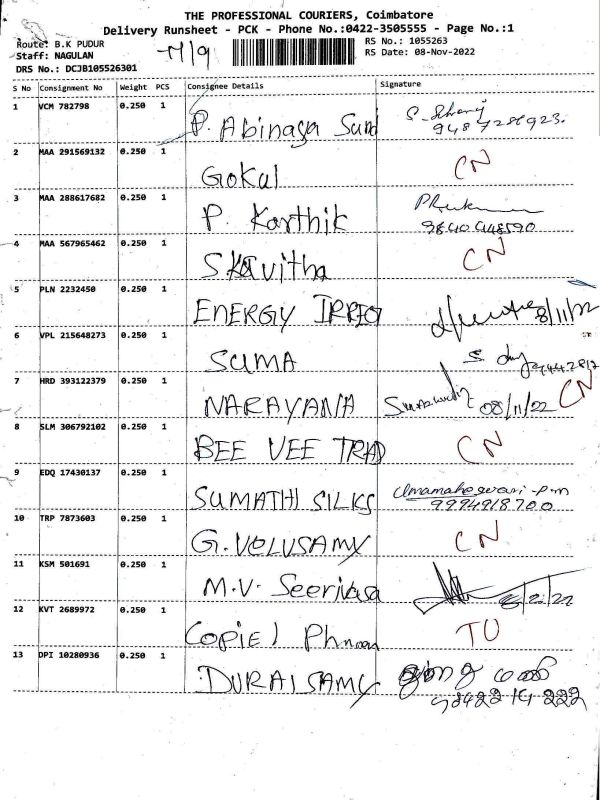 THE PROFESSIONAL COURIERS, Coimbatore
Delivery Runsheet - PCK - Phone No.:0422-3505555 - Page No.:1
Route: B.K PUDUR
Staff: NAGULAN
DRS No.: DCJB105526301
RS No.: 1055263
RS Date: 08-Nov-2022
S No Consignment No Weight PCS Consignee Details Signature
1 VCM 782798 0.250 1 P. Abinaya Sund
9487286923.
2 MAA 291569132 0.250 1 Gokul CN
3 MAA 288617682 0.250 1 P. Karthik
9840448590
4 MAA 567965462 0.250 1 S Kavitha CN
5 PLN 2232450 0.250 1 ENERGY IRREG 8/11/22
6 VPL 215648273 0.250 1 SUMA
7 HRD 393122379 0.250 1 NARAYANA 08/11/22 CN
8 SLM 306792102 0.250 1 BEE VEE TRAD CN
9 EDQ 17430137 0.250 1 SUMATHI SILKS Umamaheswari - P.M
9994918700
10 TRP 7873603 0.250 1 G. VELUSAMY CN
11 KSM 501691 0.250 1 M.V. Seenivasa
12 KVT 2689972 0.250 1 Copiel TU
13 DPI 10280936 0.250 1 DURAISAMY